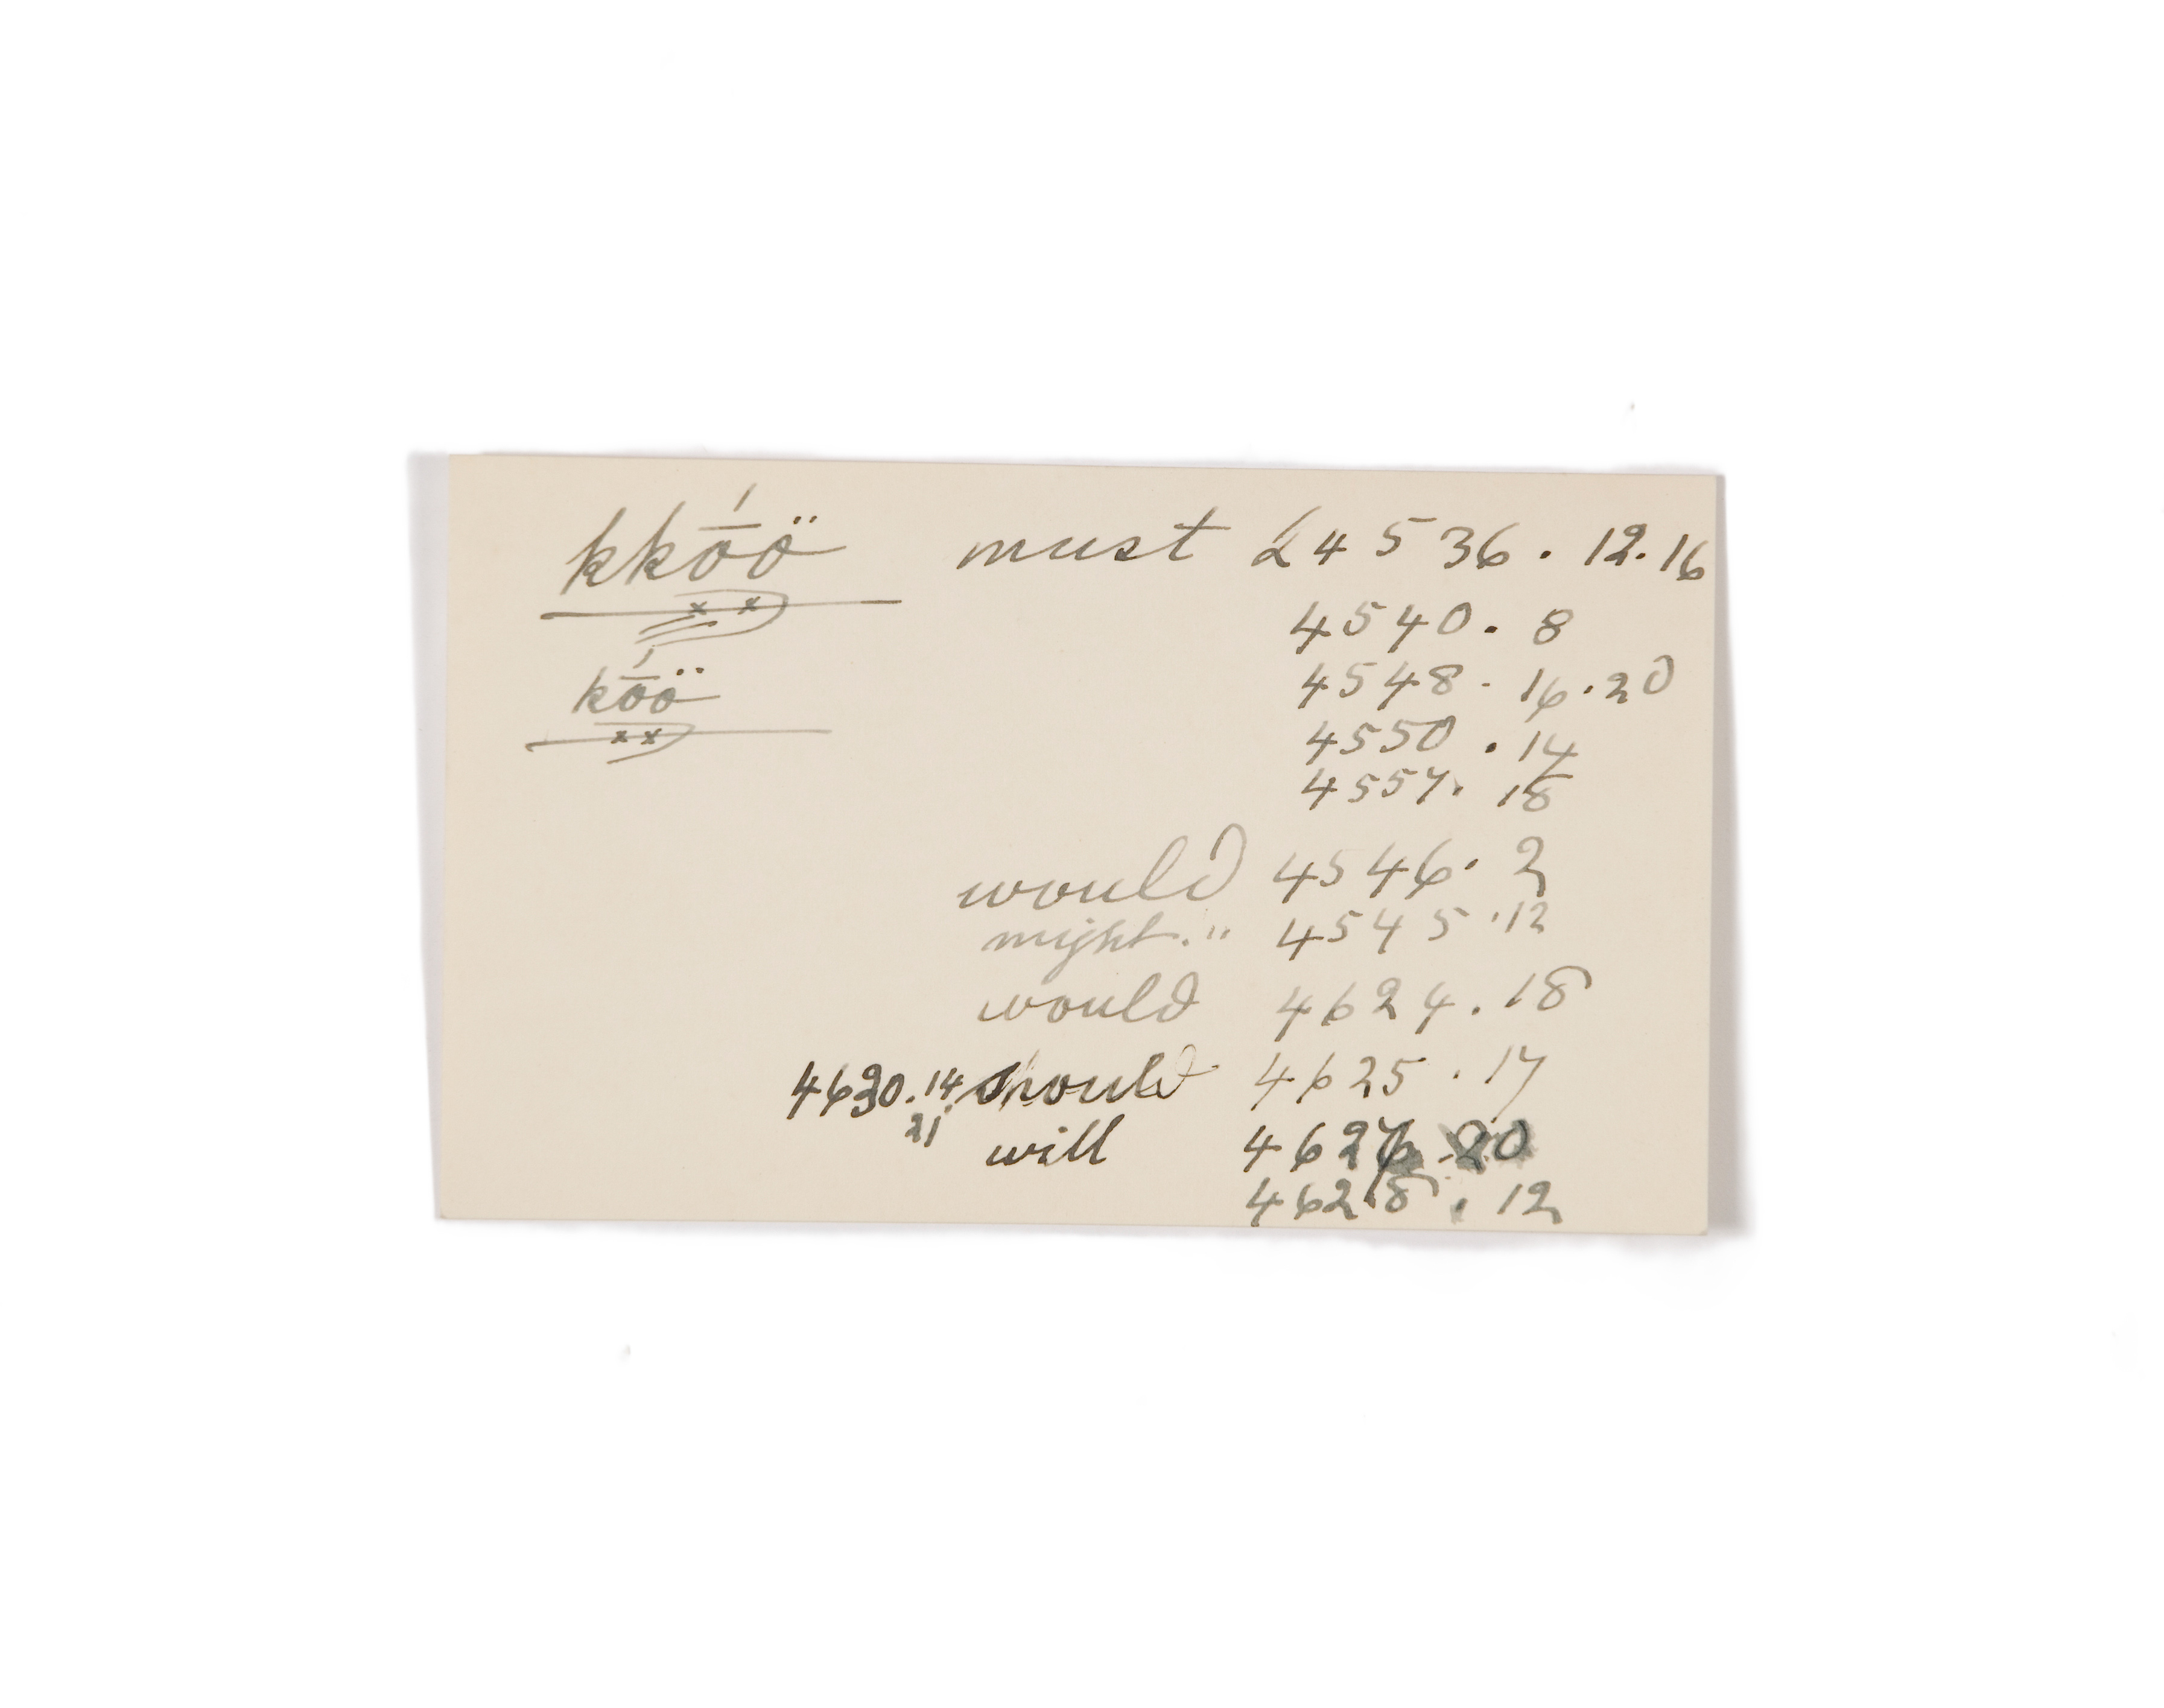 kkṓö must L4536. 12.16
4540. 8
4548. 16.20
kṓö
4550. 14
4557. 18
would 4546. 2
might. " 4545. 12
would 4624. 18
4630.14 should 4625. 17
21.
will 4626. 20
4628. 12